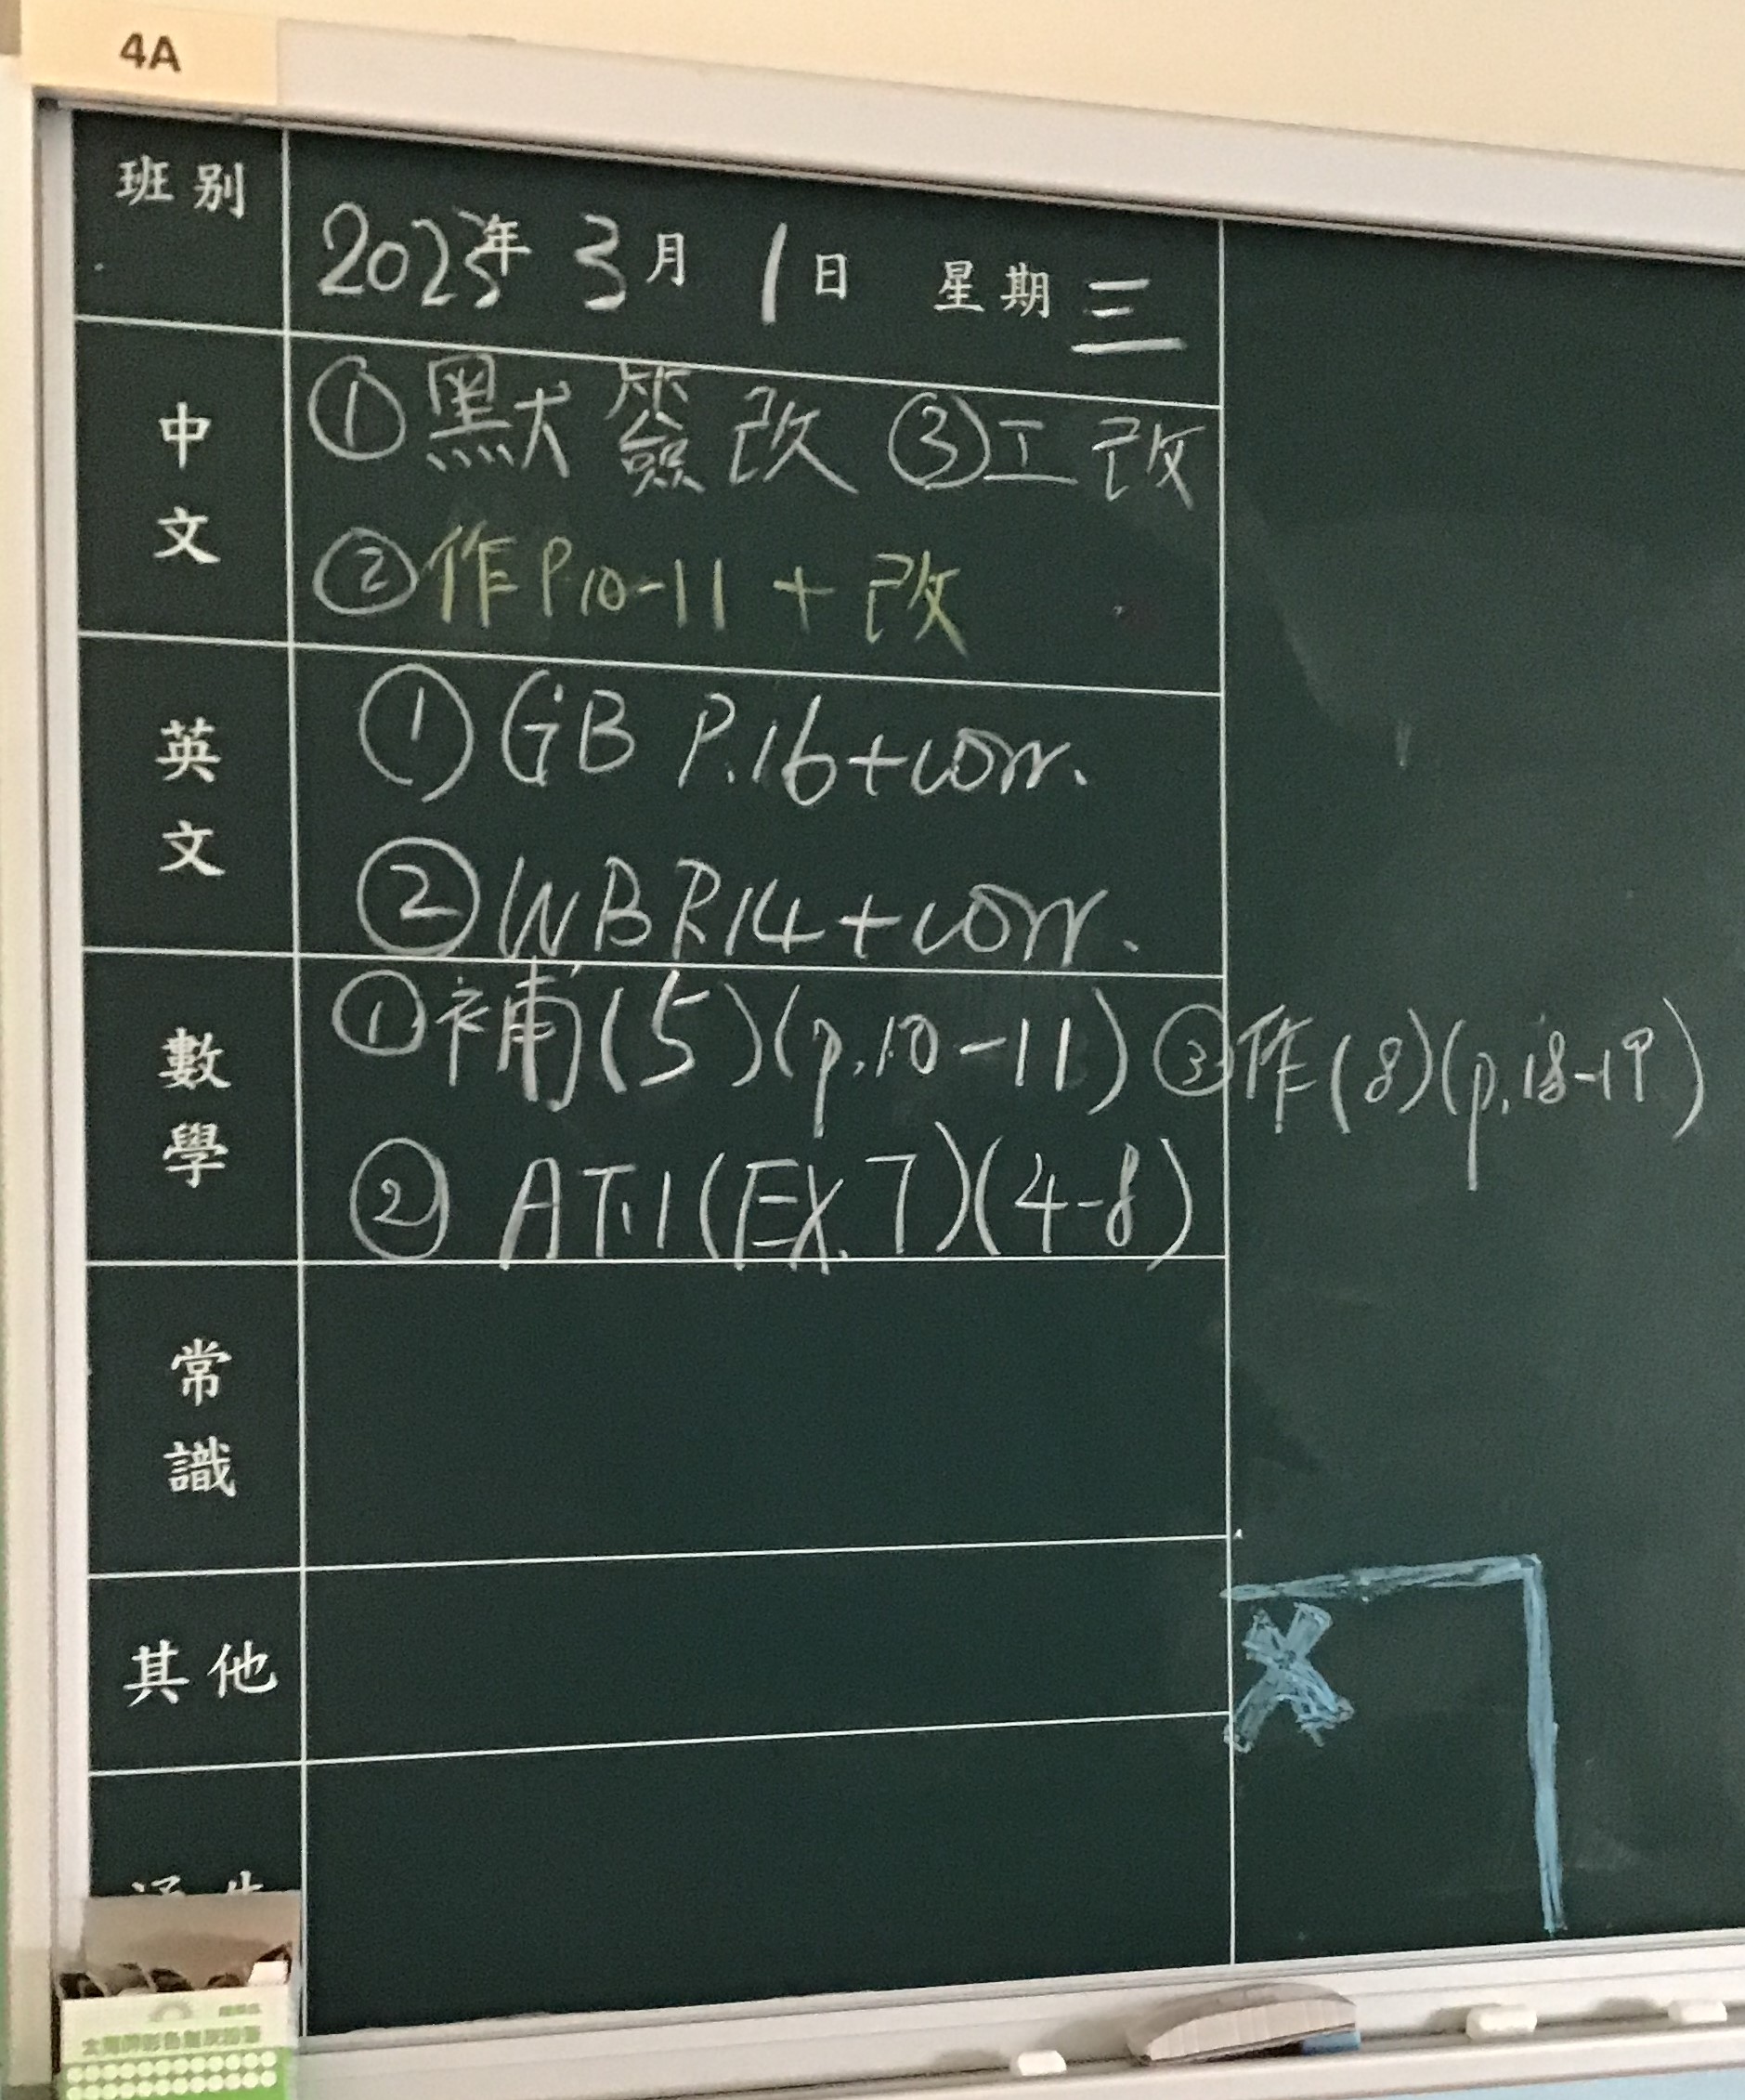 4A
班別
2023年 3月 1日 星期三
中文
①默簽改 ③工改
②作P10-11 + 改
英文
①GB P.16+corr.
②WB P.14+corr.
數學
①補(5)(p.10-11) ③作(8)(p.18-19)
② AT1(EX.7)(4-8)
常識
其他